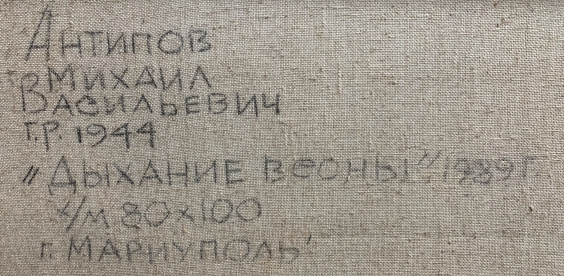 Антипов
Михаил
Васильевич
г.р. 1944
"Дыхание весны" 1989 г.
х/м 80х100
г. Мариуполь